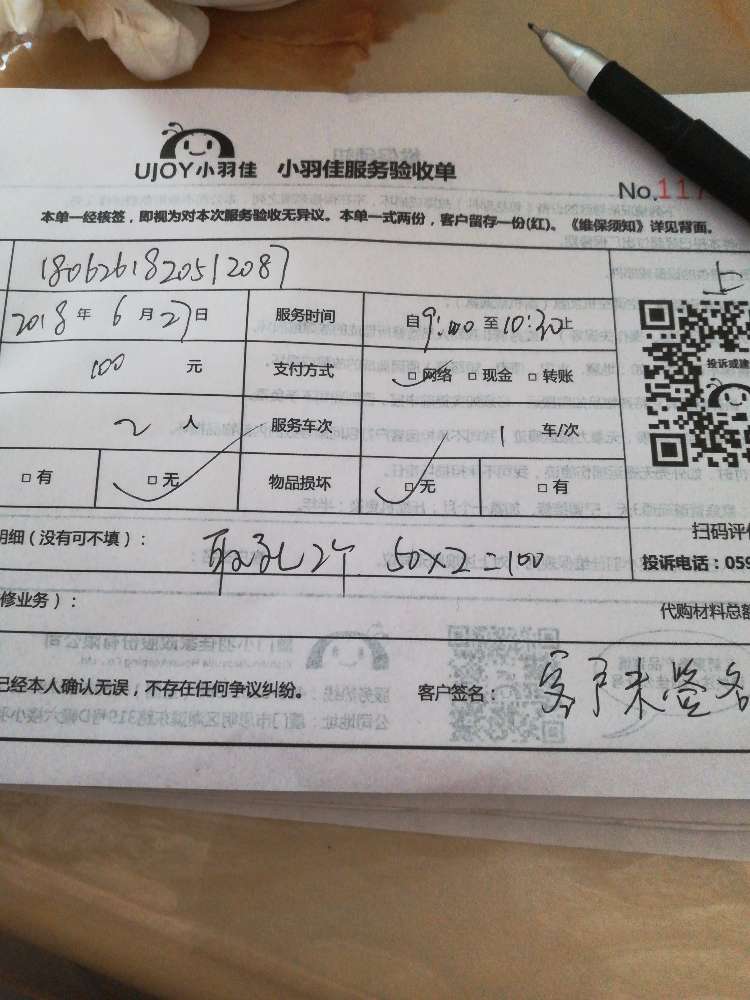 UJOY小羽佳 小羽佳服务验收单
No.117
本单一经核签，即视为对本次服务验收无异议。本单一式两份，客户留存一份(红)。《维保须知》详见背面。
1806261820512087
上
2018年6月27日 服务时间 自9:00至10:30止
100 元 支付方式 □网络 □现金 □转账
投诉或建
2 人 服务车次 1 车/次
□有 □无 物品损坏 □无 □有
扫码评
明细（没有可不填）： 取孔2个 50×2=100 投诉电话：059
修业务）： 代购材料总额
已经本人确认无误，不存在任何争议纠纷。 客户签名： 客户未签名